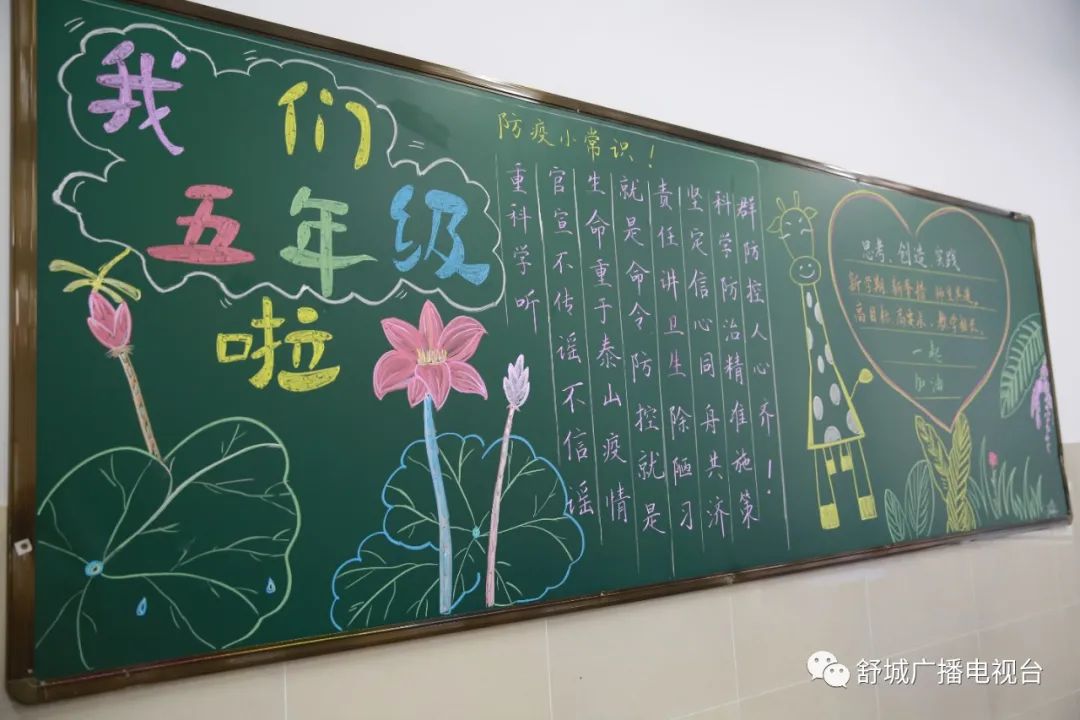 我们
五年级
啦
防疫小常识！
重科学听
官宣不传谣不信谣
生命重于泰山疫情
就是命令防控就是
责任讲卫生除陋习
坚定信心同舟共济
科学防治精准施策
群防控人心齐！
思考、创造、实践
新学期
高目标、高要求、教学相长。
一起
加油
舒城广播电视台